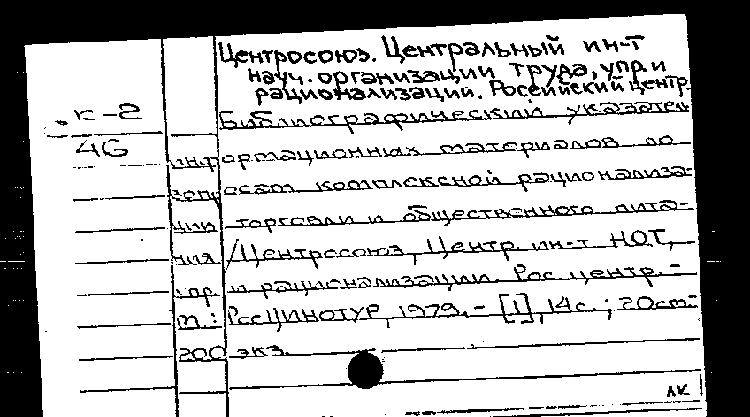 Центросоюз. Центральный ин-т
науч. организации труда, упр. и
рационализации. Российский центр.
к-2
Библиографический указатель
46
информационных материалов по
вопросам комплексной рационализа-
ции торговли и общественного пита-
ния /Центросоюз, Центр. ин-т НОТ,
упр. и рационализации. Рос. центр. –
М.: РосЦИНОТУР, 1979. – [1], 14 с.; 20 см –
200 экз.
АК